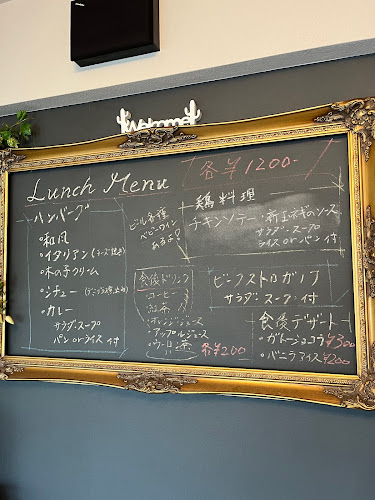 Welcome
Lunch Menu
各¥1200-
ハンバーグ
・和風
・イタリアン(チーズ焼き)
・木の子クリーム
・シチュー
・カレー
サラダ・スープ
パン orライス 付
ビール各種
ベビーワイン
あるよ!
鶏料理
チキンソテー・新玉ネギのソース
サラダ・スープ
ライス orパン 付
ビーフストロガノフ
サラダ スープ 付
食後ドリンク
・コーヒー
・紅茶
・オレンジジュース
・アップルジュース
・ウーロン茶
各¥200
食後デザート
・ガトーショコラ ¥300
・バニラアイス ¥200